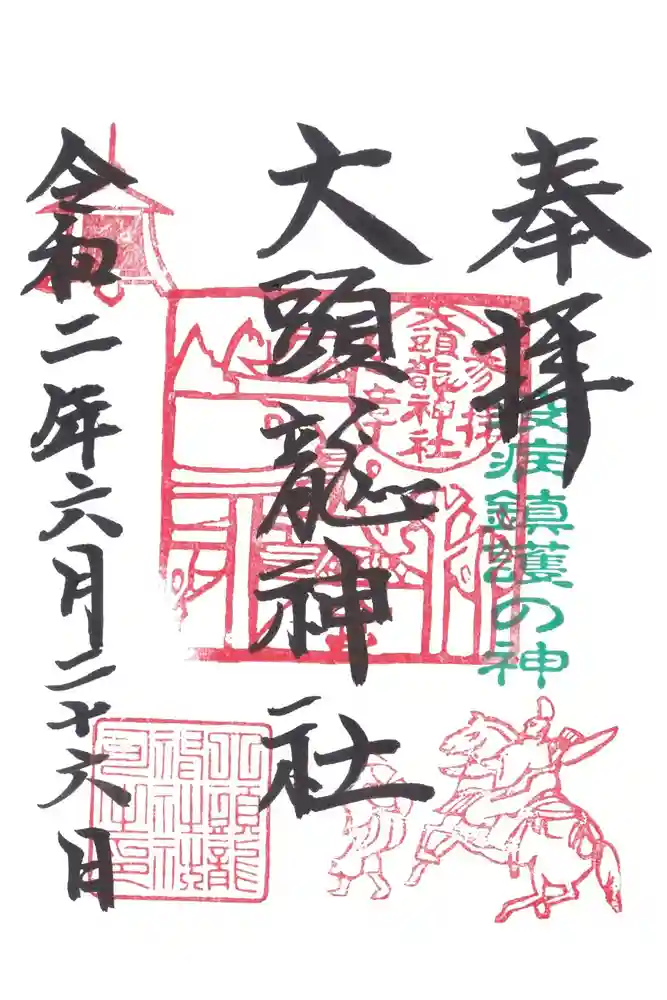 奉拝
疫病鎮護の神
大頭龍神社
大頭龍神社
参拝
章
令和二年六月二十六日